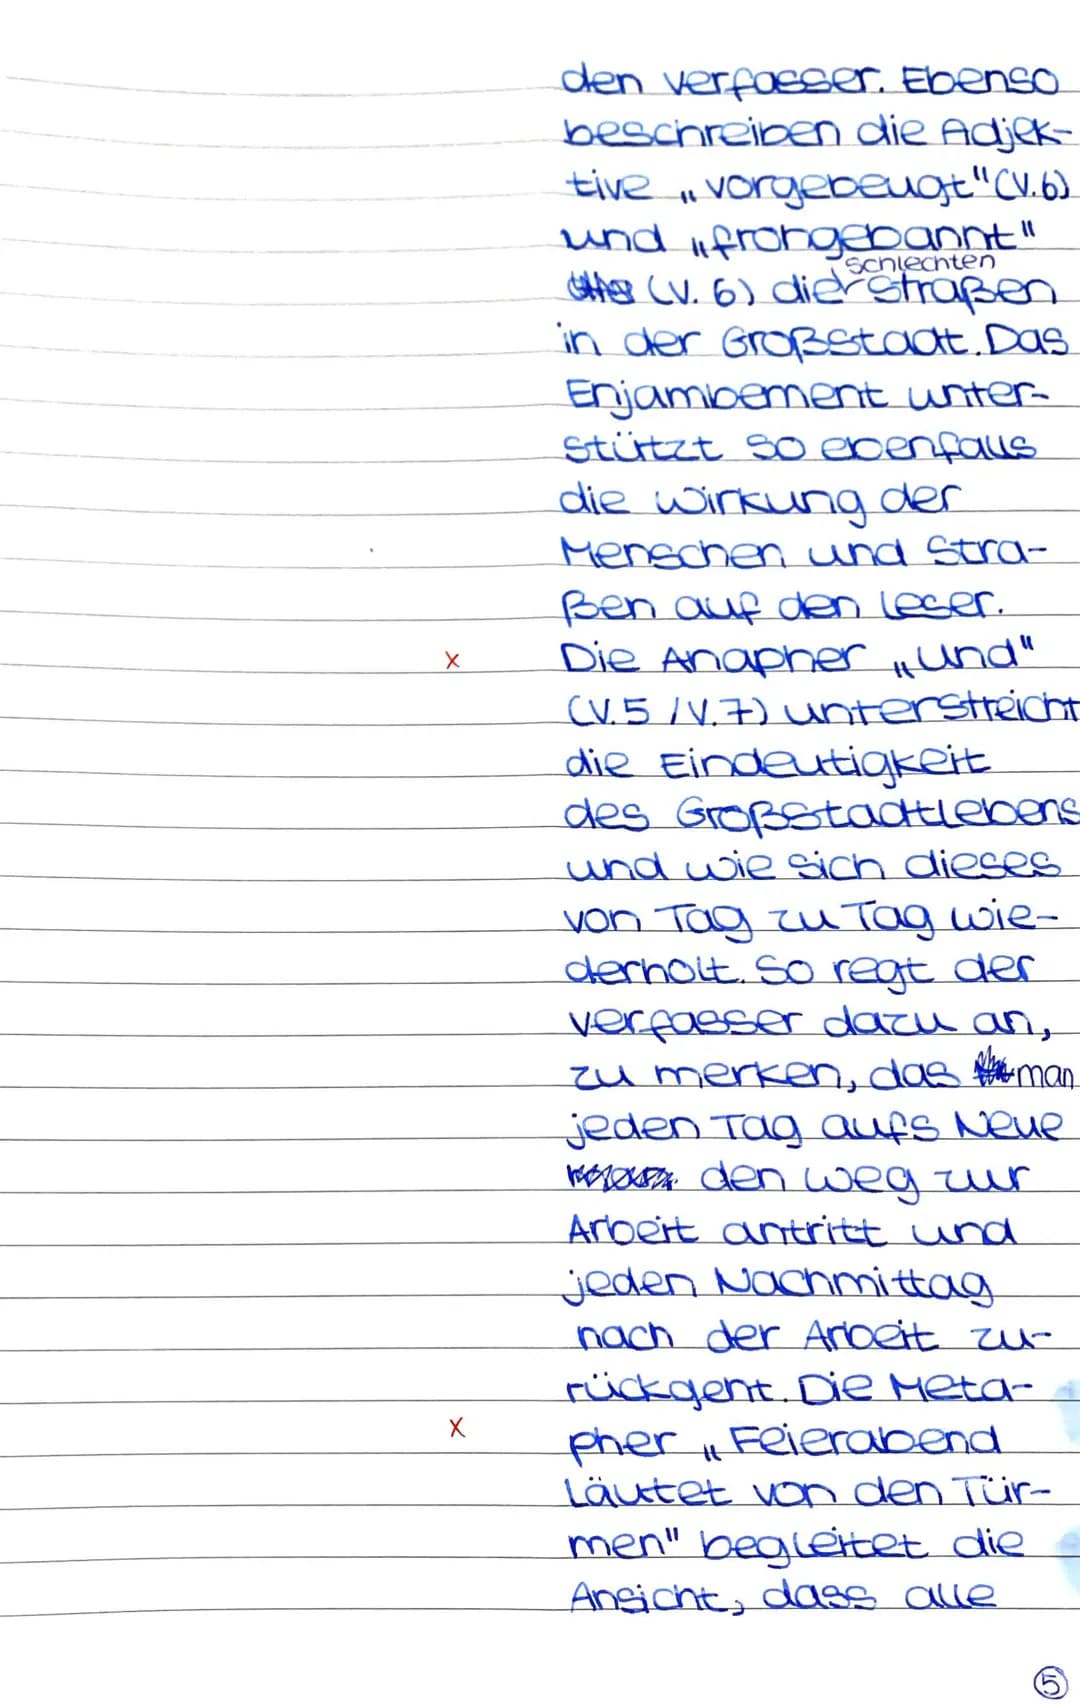 den verfasser. Ebenso
beschreiben die Adjek-
tive „vorgebeugt" (V.6)
und „frongebannt"
schlechten
(V. 6) die Straßen
in der Großstadt. Das
Enjambement unter-
stürtzt so ebenfalls
die Wirkung der
Menschen und Stra-
ßen auf den Leser.
x Die Anapher „und"
(V.5 / V.7) unterstreicht
die Eindeutigkeit
des Großstadtlebens
und wie sich dieses
von Tag zu Tag wie-
derholt. So regt der
verfasser dazu an,
zu merken, das man
jeden Tag aufs Neue
den weg zur
Arbeit antritt und
jeden Nachmittag
nach der Arbeit zu-
rückgeht. Die Meta-
x pher „Feierabend
Läutet von den Tür-
men" begleitet die
Ansicht, dass alle
5